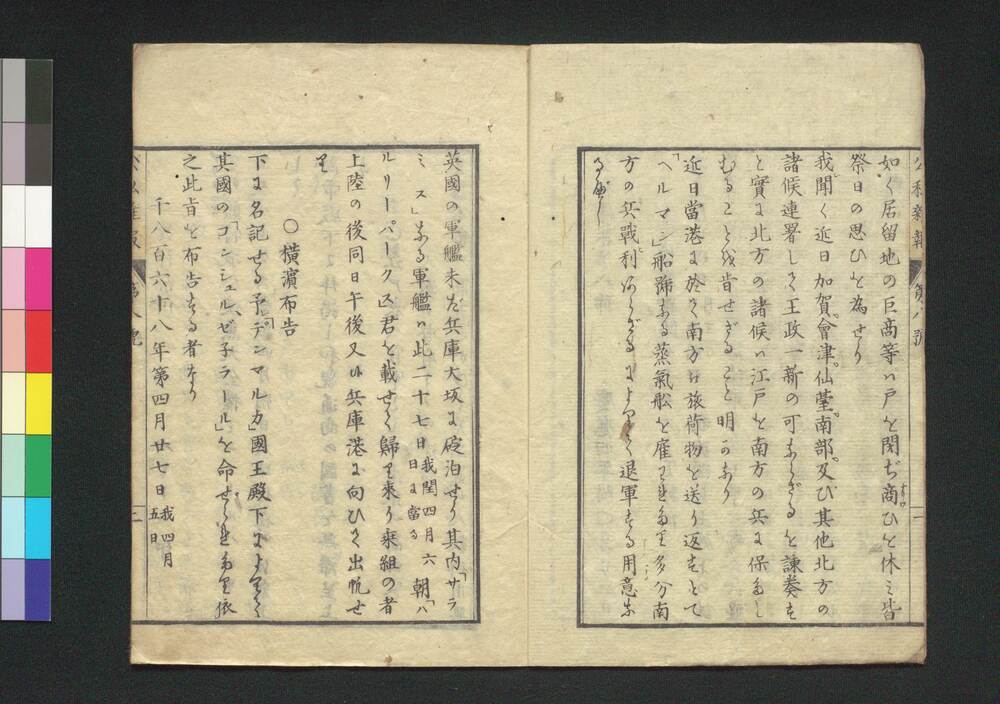 公私雜報 第八號 一
如く居留地の巨商等ハ戸を閉ぢ商ひを休ミ皆
祭日の思ひを為せり
我聞く近日加賀會津仙臺南部及び其他北方の
諸候連署して王政一新の可ならざるを諌奏す
と實に北方の諸候ハ江戸を南方の兵に保たし
むることを肯せざること明かなり
近日當港に於て南方ハ旅荷物を送り返すとて
「ヘルマン」船號なる蒸氣舩を雇ひたり多分南
方の兵戰利あらざるによりて退軍する用意な
るべし
英國の軍艦未だ兵庫大坂に碇泊せり其内「サラ
ミス」なる軍艦ハ此二十七日我閏四月六日に當る朝「ハ
ルリーパークス」君を載せて歸り来り乗組の者
上陸の後同日午後又ハ兵庫港に向ひて出帆せ
り
〇橫濵布告
下に名記せる予「デンマルカ」國王殿下によりて
其國の「コンシュル、ゼ子ラール」を命せられたり依
之此旨を布告する者なり
千八百六十八年第四月廿七日我四月五日
公私雜報 第八號 二